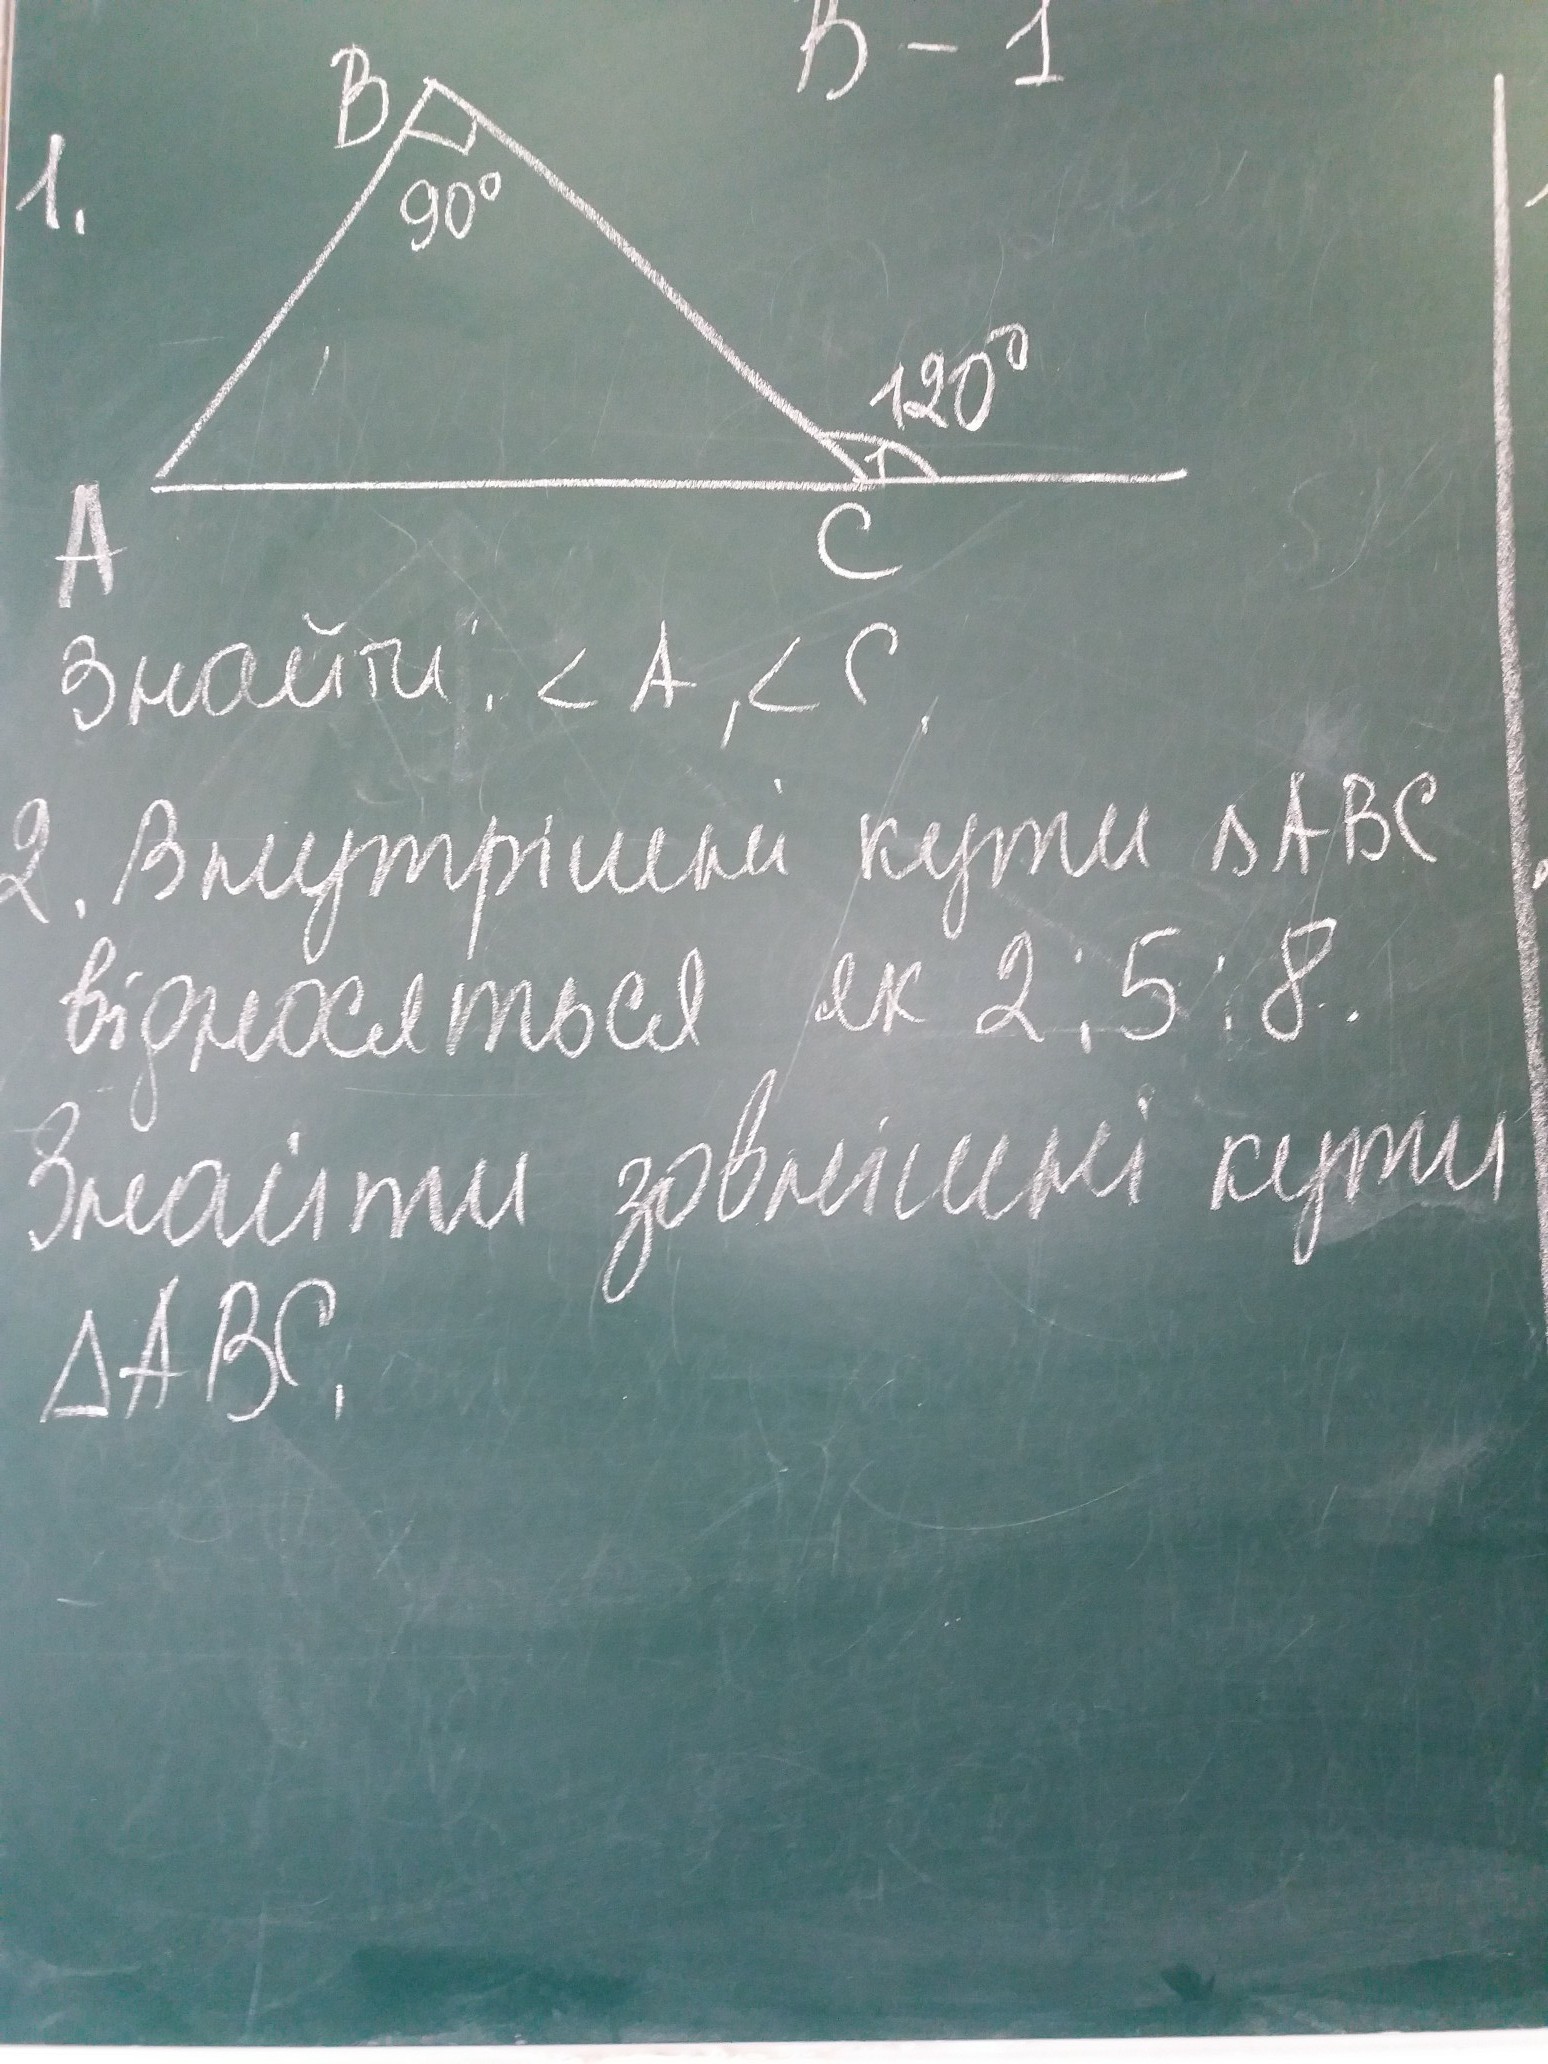 В - 1
1.
B
90°
120°
1
A
C
Знайти: < A, < C.
2. Внутрішні кути ΔABC
відносяться як 2:5:8.
Знайти зовнішні кути
ΔABC.